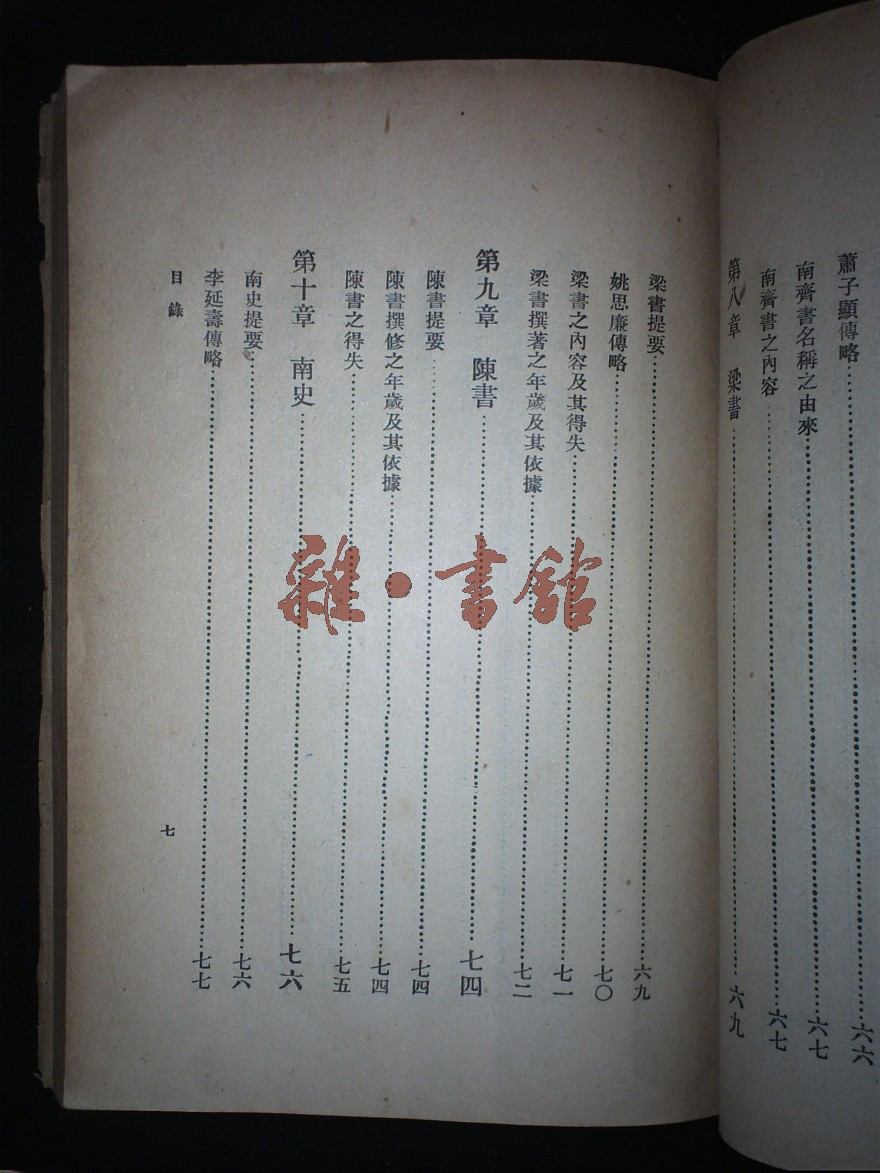 蕭子顯傳略……六六
南齊書名稱之由來……六七
南齊書之內容……六七
第八章 梁書……六九
梁書提要……六九
姚思廉傳略……七〇
梁書之內容及其得失……七一
梁書撰著之年歲及其依據……七二
第九章 陳書……七四
陳書提要……七四
陳書撰修之年歲及其依據……七四
陳書之得失……七五
第十章 南史……七六
南史提要……七六
李延壽傳略……七七
目錄
七
雜·書館